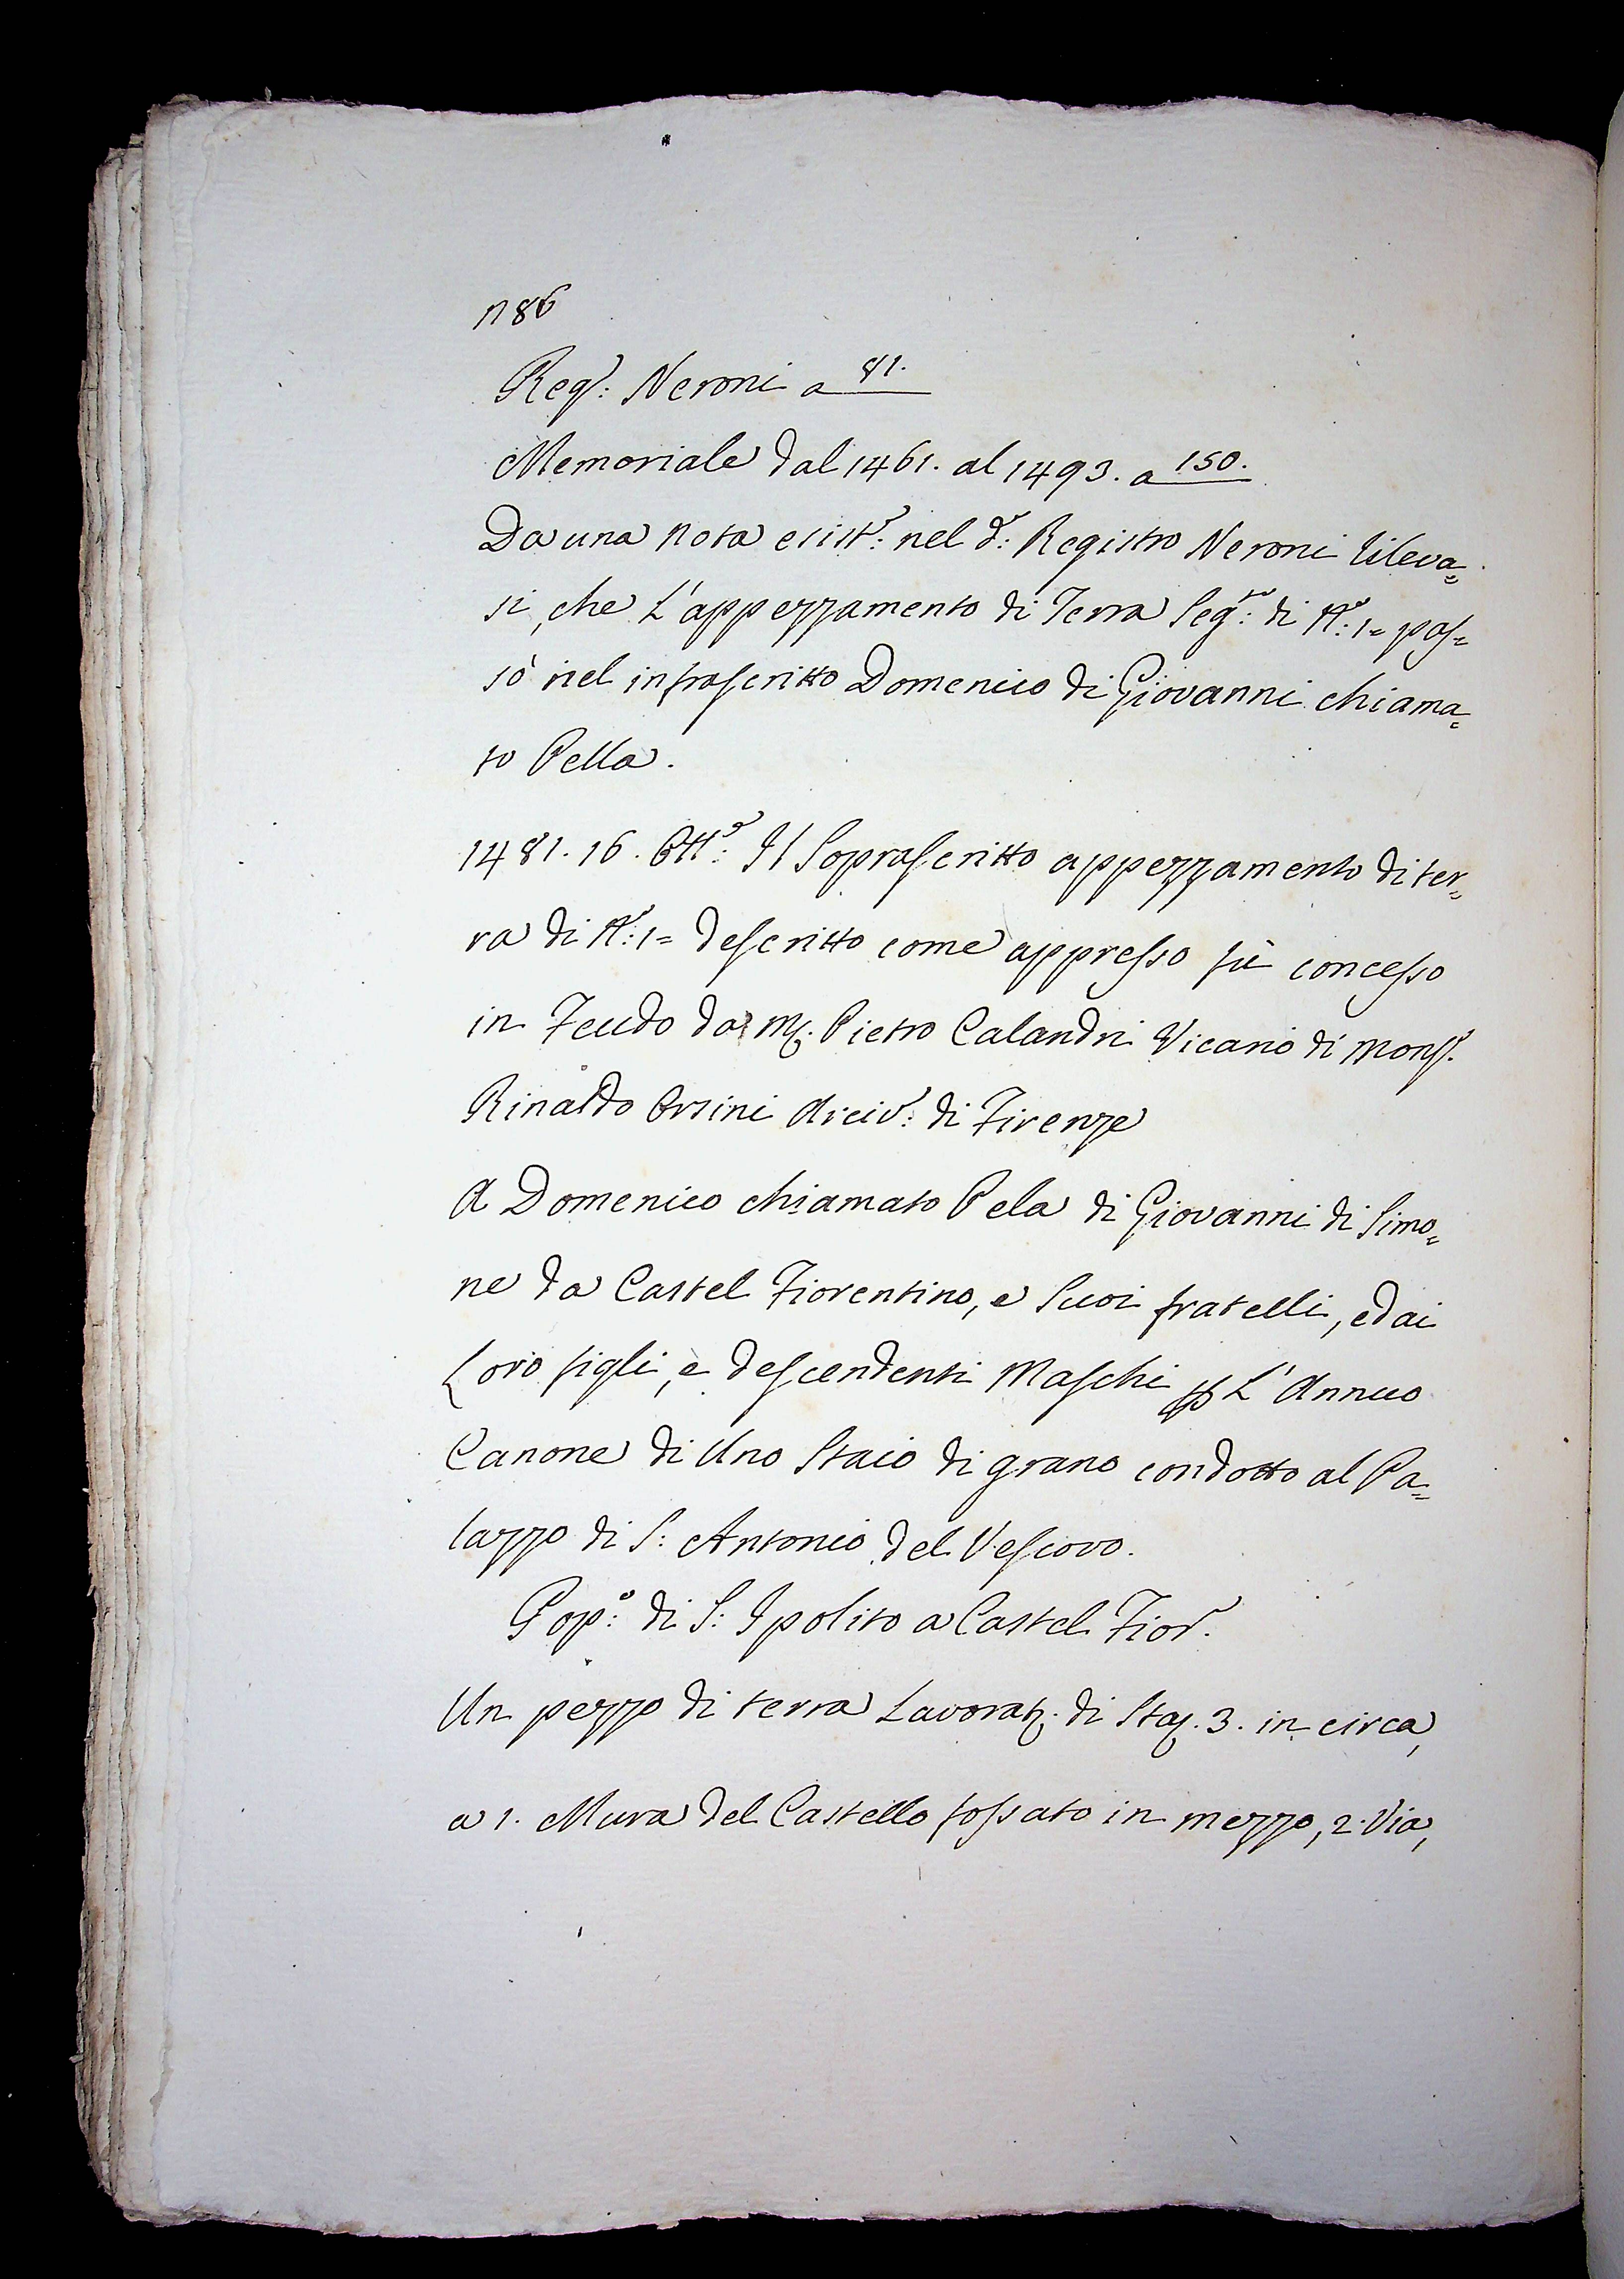 n 86
Reg.: Neroni a 81.
Memoriale dal 1461. al 1493. a 150.
Da una nota esist.: nel d.: Registro Neroni rileva=
si, che L'appezzamento di Terra Seg.to: di N.: 1= pas=
sò nel infrascritto Domenico di Giovanni chiama=
to Pella.
1481. 16. Ott.e: Il Soprascritto appezzamento di ter=
ra di N.: 1= descritto come appresso fù concesso
in Feudo da M. Pietro Calandri Vicario di Mons.r
Rinaldo Orsini Arciv.: di Firenze
A Domenico chiamato Pela di Giovanni di Simo=
ne da Castel Fiorentino, e Suoi fratelli, ed ai
Loro figli, e descendenti Maschi p L'Annuo
Canone di Uno Staio di grano condotto al Pa=
lazzo di S: Antonio del Vescovo.
Pop.o: di S: Ipolito a Castel Fior.
Un pezzo di terra Lavorat. di Sta. 3. in circa,
a 1. Mura del Castello fossato in mezzo, 2. Via,